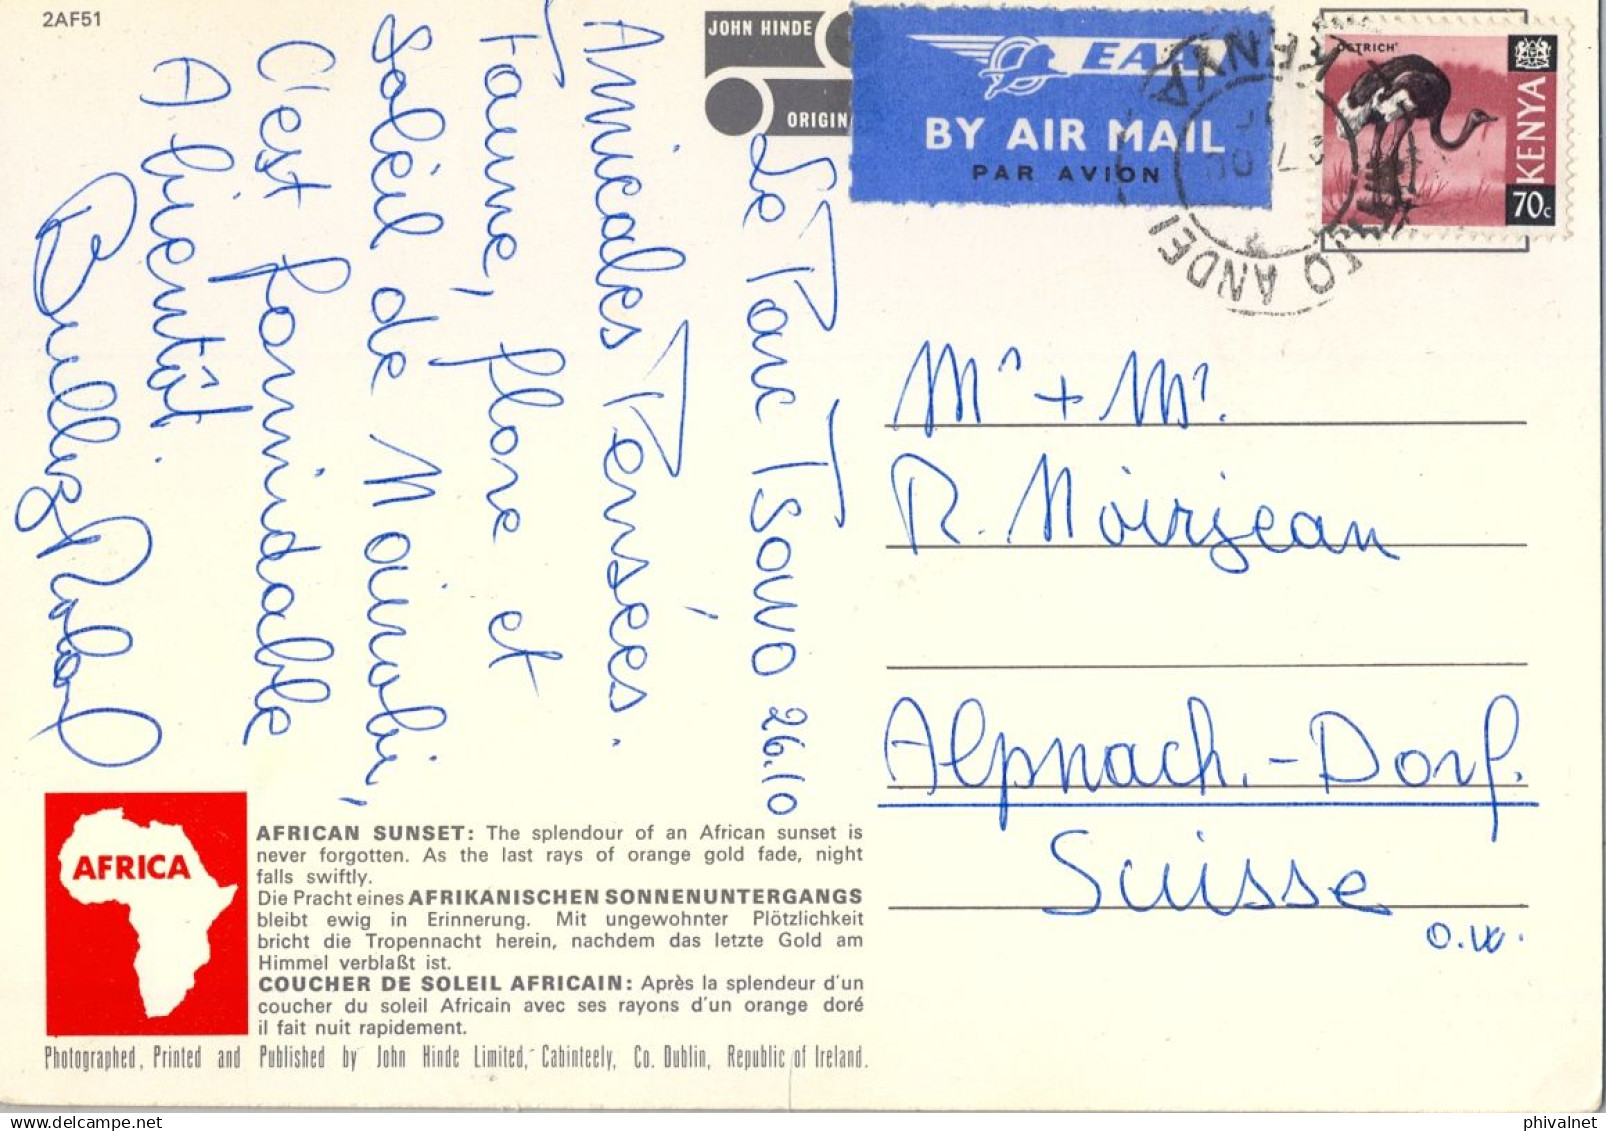 2AF51
JOHN HINDE
ORIGINA
EAA
BY AIR MAIL
PAR AVION
OSTRICH
KENYA
70c
KENYA
MTITO ANDEI
Le Parc Tsavo 26.10
Amicales Pensées.
Faune, flore et
soleil de Nairobi,
C'est formidable
A bientôt.
Mr + Mr.
R. Noirjean
Alpnach.-Dorf.
Suisse
O.W.
AFRICA
AFRICAN SUNSET: The splendour of an African sunset is
never forgotten. As the last rays of orange gold fade, night
falls swiftly.
Die Pracht eines AFRIKANISCHEN SONNENUNTERGANGS
bleibt ewig in Erinnerung. Mit ungewohnter Plötzlichkeit
bricht die Tropennacht herein, nachdem das letzte Gold am
Himmel verblaßt ist.
COUCHER DE SOLEIL AFRICAIN: Après la splendeur d'un
coucher du soleil Africain avec ses rayons d'un orange doré
il fait nuit rapidement.
Photographed, Printed and Published by John Hinde Limited, Cabinteely, Co. Dublin, Republic of Ireland.
phivalnet